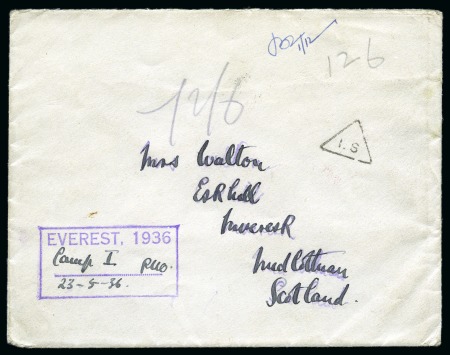 126
12/6
I.S
Mrs Walton
Eskhill
Inveresk
Midlothian
Scotland.
EVEREST, 1936
Camp I
23-5-36.